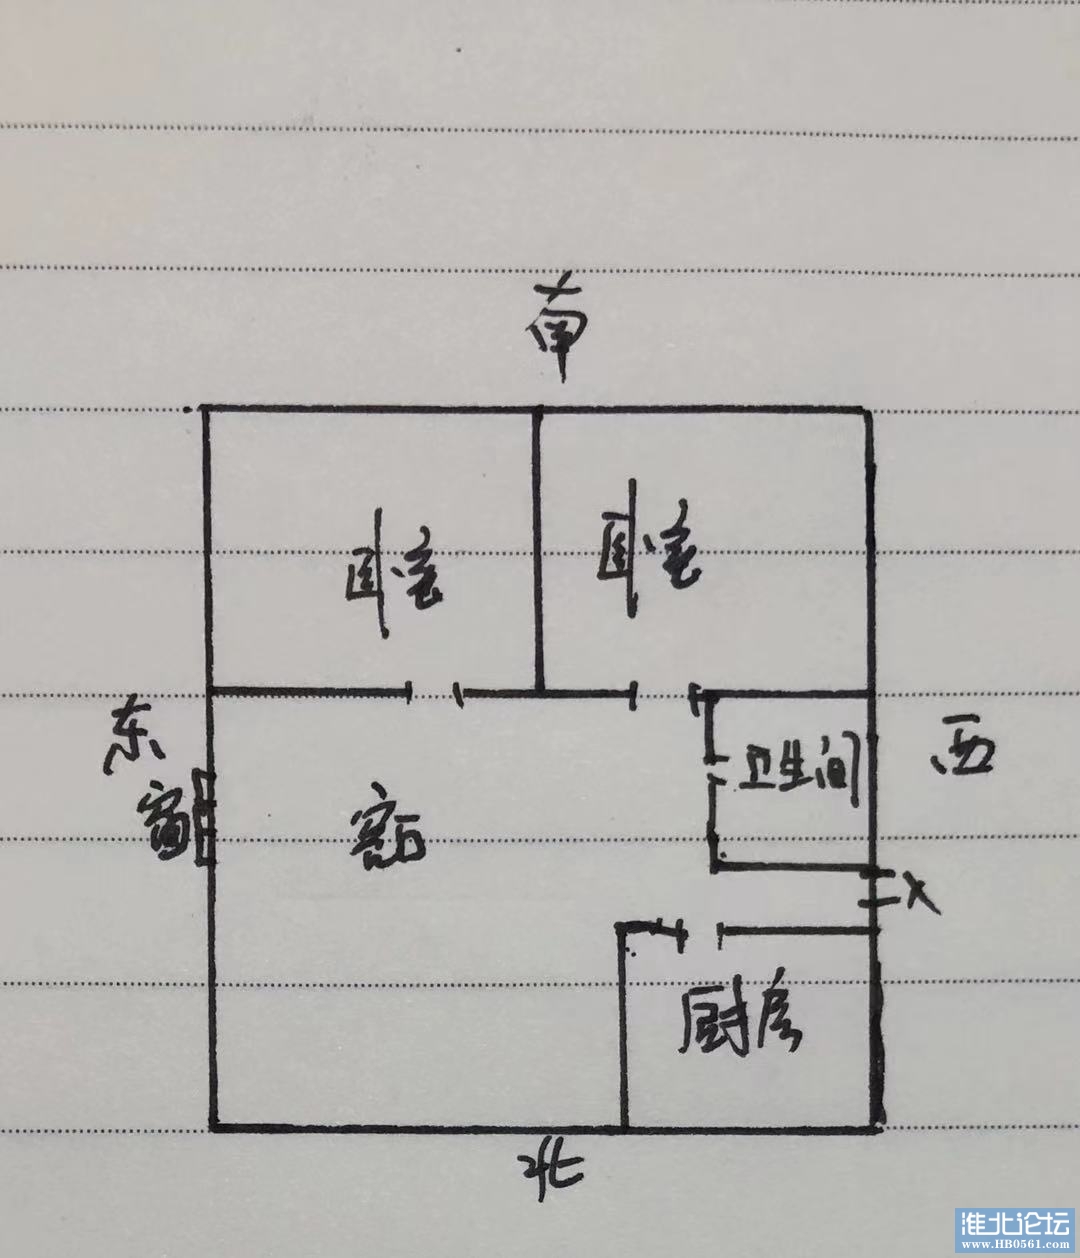 南
卧室
卧室
东
窗
客厅
卫生间
西
入
厨房
北
淮北论坛
www.HB0561.com